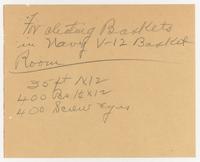 For sliding Baskets
in Navy V-12 Basket
Room
35 ft 1x12
400 Bolts x 12
400 Screw eyes